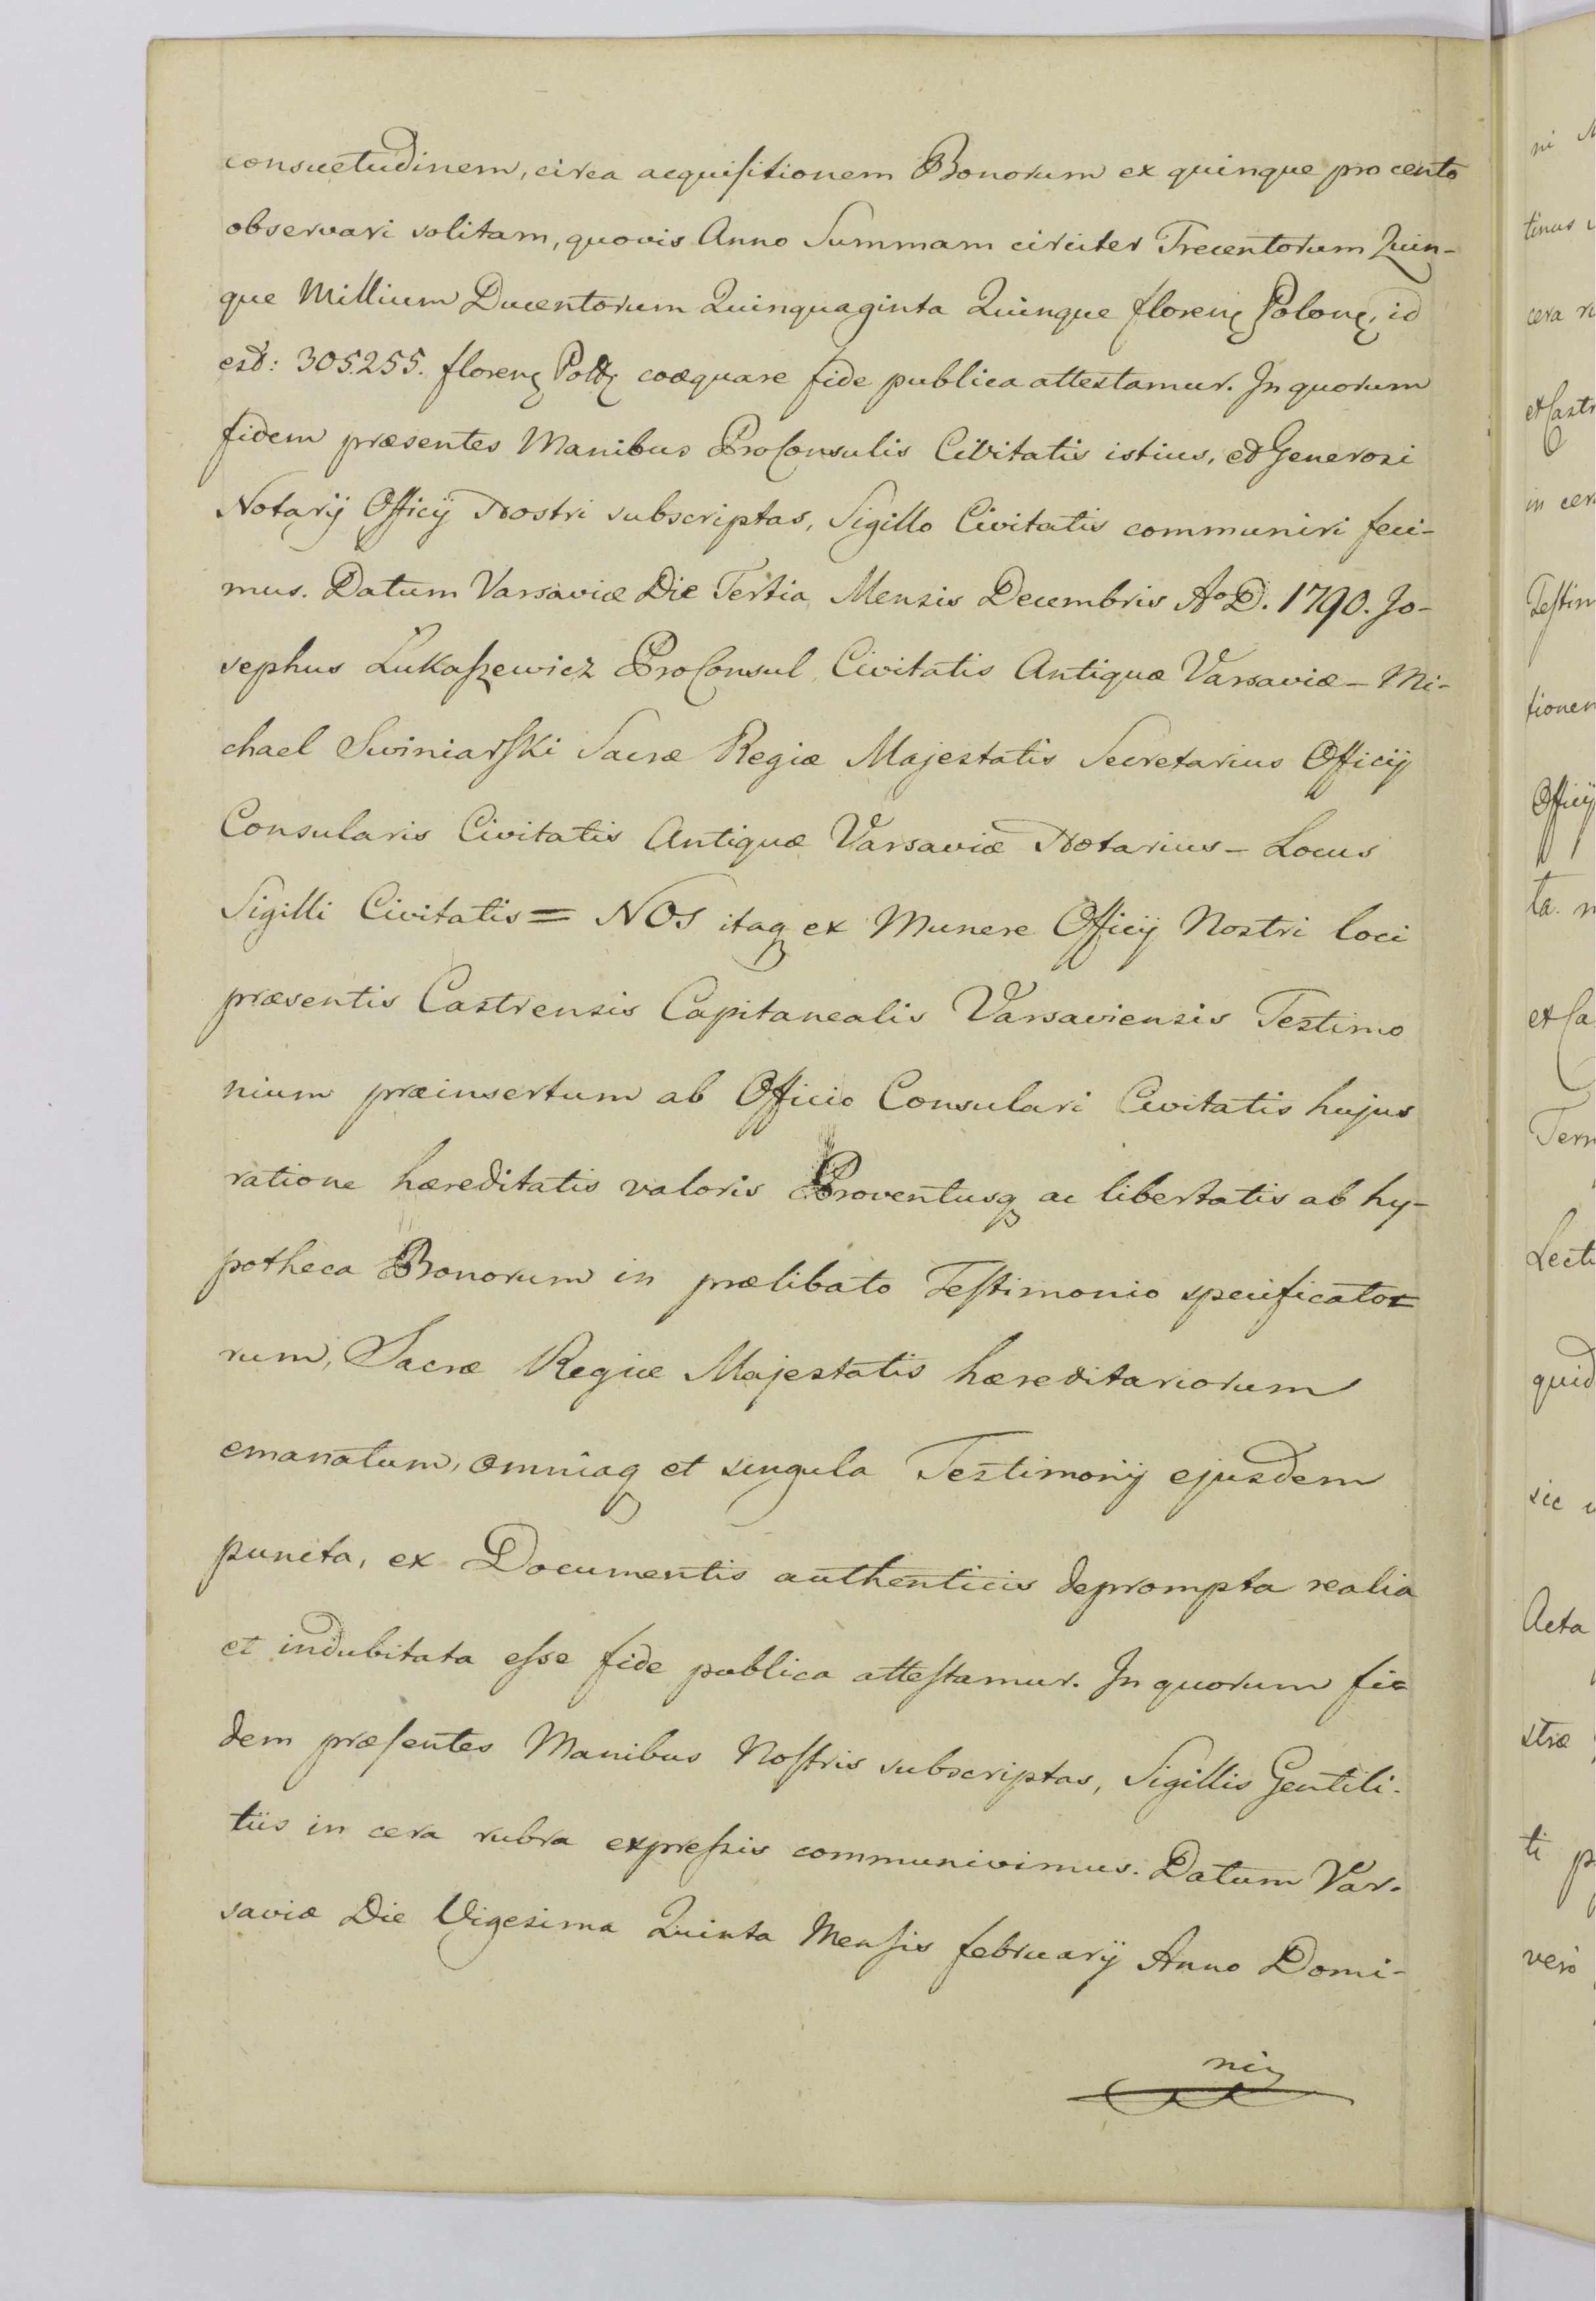 consuetudinem, circa acquisitionem Bonorum ex quinque pro cento
observari solitam, quovis Anno Summam circiter Trecentorum Quin-
que Millium Ducentorum Quinquaginta Quinque florenę Polonę, id
est: 305.255. florenę coæquare fide publica attestamur. In quorum
fidem præsentes Manibus ProConsulis Civitatis istius, et Generosi
Notarij Officij Nostri subscriptas, Sigillo Civitatis communiri feci-
mus. Datum Varsaviæ Die Tertia Mensis Decembris Aº D. 1790. Jo-
sephus Łukaszewicz ProConsul Civitatis Antiquæ Varsaviæ – Mi-
chael Swiniarski Sacræ Regiæ Majestatis Secretarius Officij
Consularis Civitatis Antiquæ Varsaviæ Notarius – Locus
Sigilli Civitatis = NOS itaq ex Munere Officij Nostri loci
præsentis Castrensis Capitanealis Varsaviensis Testimo
nium præinsertum ab Officio Consulari Civitatis hujus
ratione hæreditatis valoris Proventusq ac libertatis ab hy-
potheca Bonorum in prælibato Testimonio specificato=
rum, Sacræ Regiæ Majestatis hæreditariorum
emanatum, omniaq et singula Testimonij ejusdem
puncta, ex Documentis authenticis deprompta realia
et indubitata esse fide publica attestamur. In quorum fi=
dem præsentes Manibus Nostris subscriptas, Sigillis Gentili-
tiis in cera rubra expressis communivimus. Datum Var-
saviæ Die Vigesima Quinta Mensis februarij Anno Domi-
ni
ni
tinus
cera
et Castr
in cer
Testim
tionem
Officij
ta
et Ca
Terr
Lect
quid
sic
Acta
stræ
ti
verò